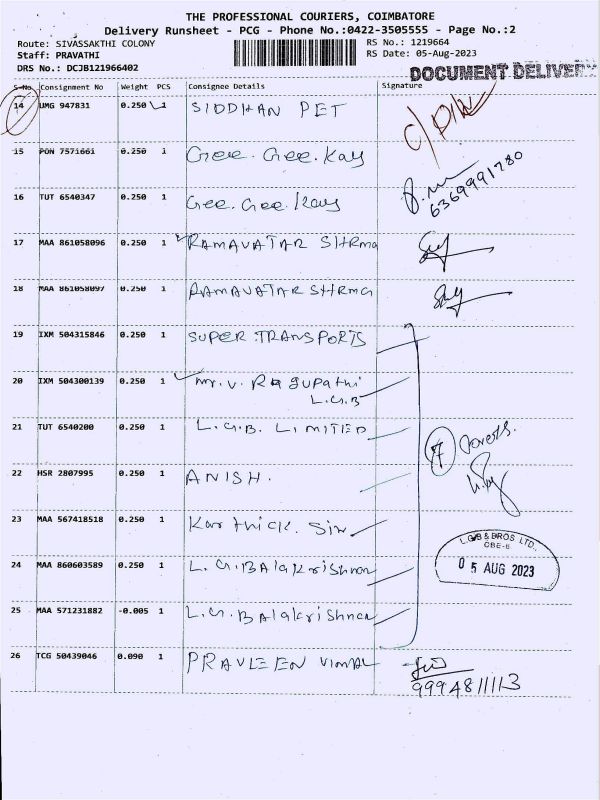 THE PROFESSIONAL COURIERS, COIMBATORE
Delivery Runsheet - PCG - Phone No.:0422-3505555 - Page No.:2
Route: SIVASSAKTHI COLONY RS No.: 1219664
Staff: PRAVATHI RS Date: 05-Aug-2023
DRS No.: DCJB121966402 DOCUMENT DELIVERY
S.No. Consignment No Weight PCS Consignee Details Signature
14 UMG 947831 0.250 1 SIDDHAN PET
15 PON 7571661 0.250 1 Gee. Gee. Kay
16 TUT 6540347 0.250 1 Gee. Gee. Kay 6369991780
17 MAA 861058096 0.250 1 RAMAVATAR SHRma
18 MAA 861058097 0.250 1 RAMAVATAR SHRMA
19 IXM 504315846 0.250 1 SUPER TRANSPORTS
20 IXM 504300139 0.250 1 Mr. V. Ragupathi
L.G.B
21 TUT 6540200 0.250 1 L.G.B. LIMITED
7 Covers.
22 HSR 2807995 0.250 1 ANISH.
23 MAA 567418518 0.250 1 Karthick. Siv
L.G.B & BROS LTD.,
CBE-6
24 MAA 860603589 0.250 1 L.G.BAlakrishnan 05 AUG 2023
25 MAA 571231882 -0.005 1 L.G.BAlakrishnan
26 TCG 50439046 0.090 1 PRAVLEEN VIMAL
9994811113